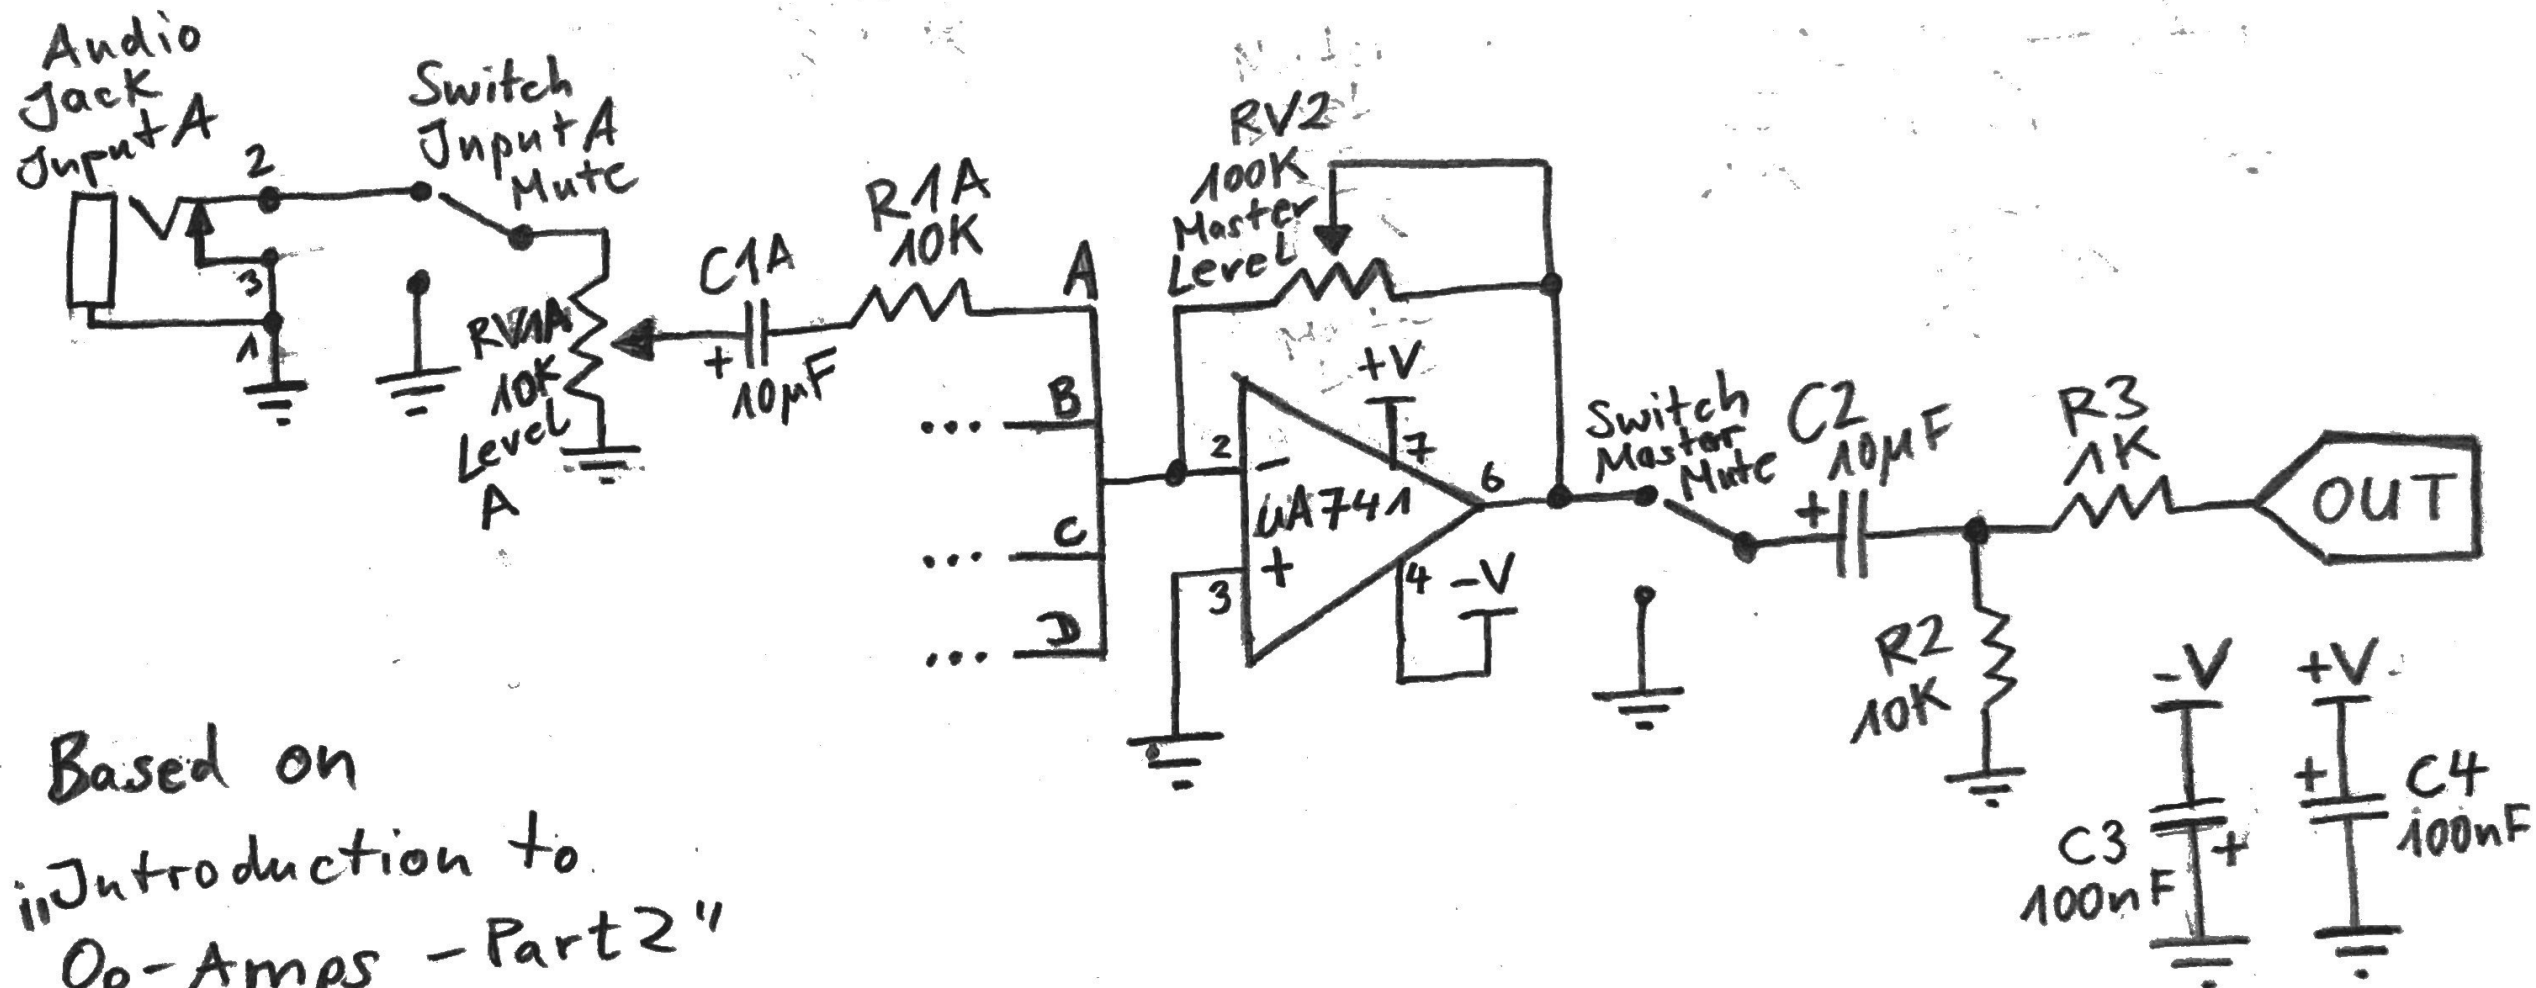 Audio
Jack
Input A
2
3
1
Switch
Input A
Mute
RV1A
10K
Level
A
C1A
+
10µF
R1A
10K
A
... B
... C
... D
RV2
100K
Master
Level
+V
7
2
-
uA741
6
+
3
4
-V
Switch
Master
Mute
C2
10µF
+
R3
1K
OUT
R2
10K
-V
C3
100nF
+
+V
+
C4
100nF
Based on
„Introduction to
Op-Amps - Part 2"